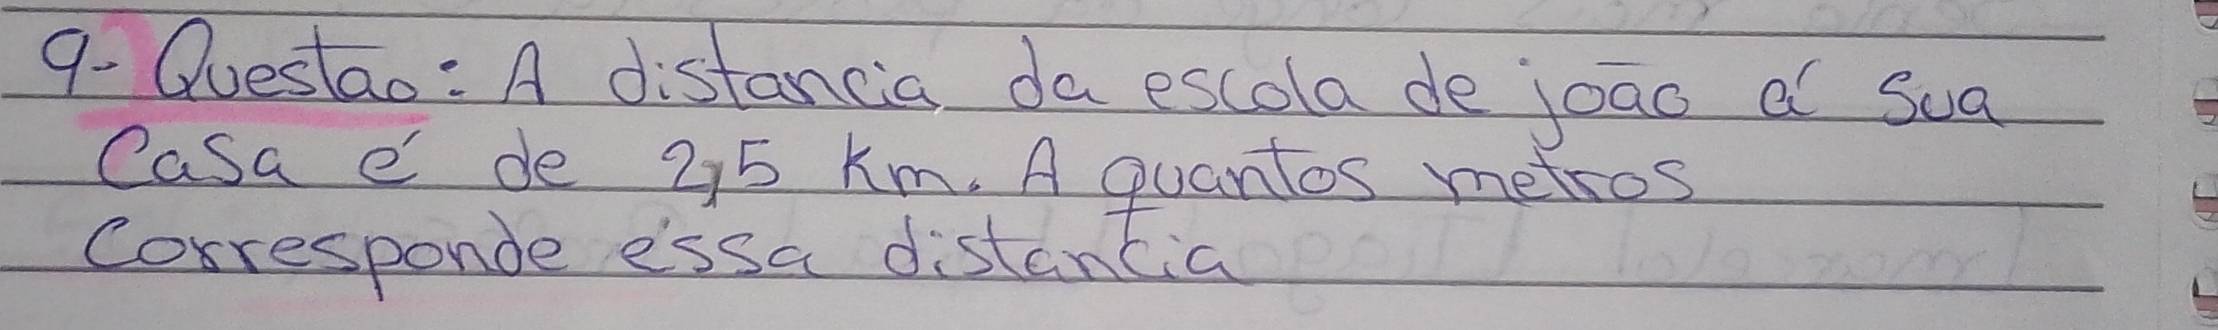 9- Questão: A distancia da escola de joão á sua
Casa é de 2,5 Km. A quantos metros
Corresponde essa distancia